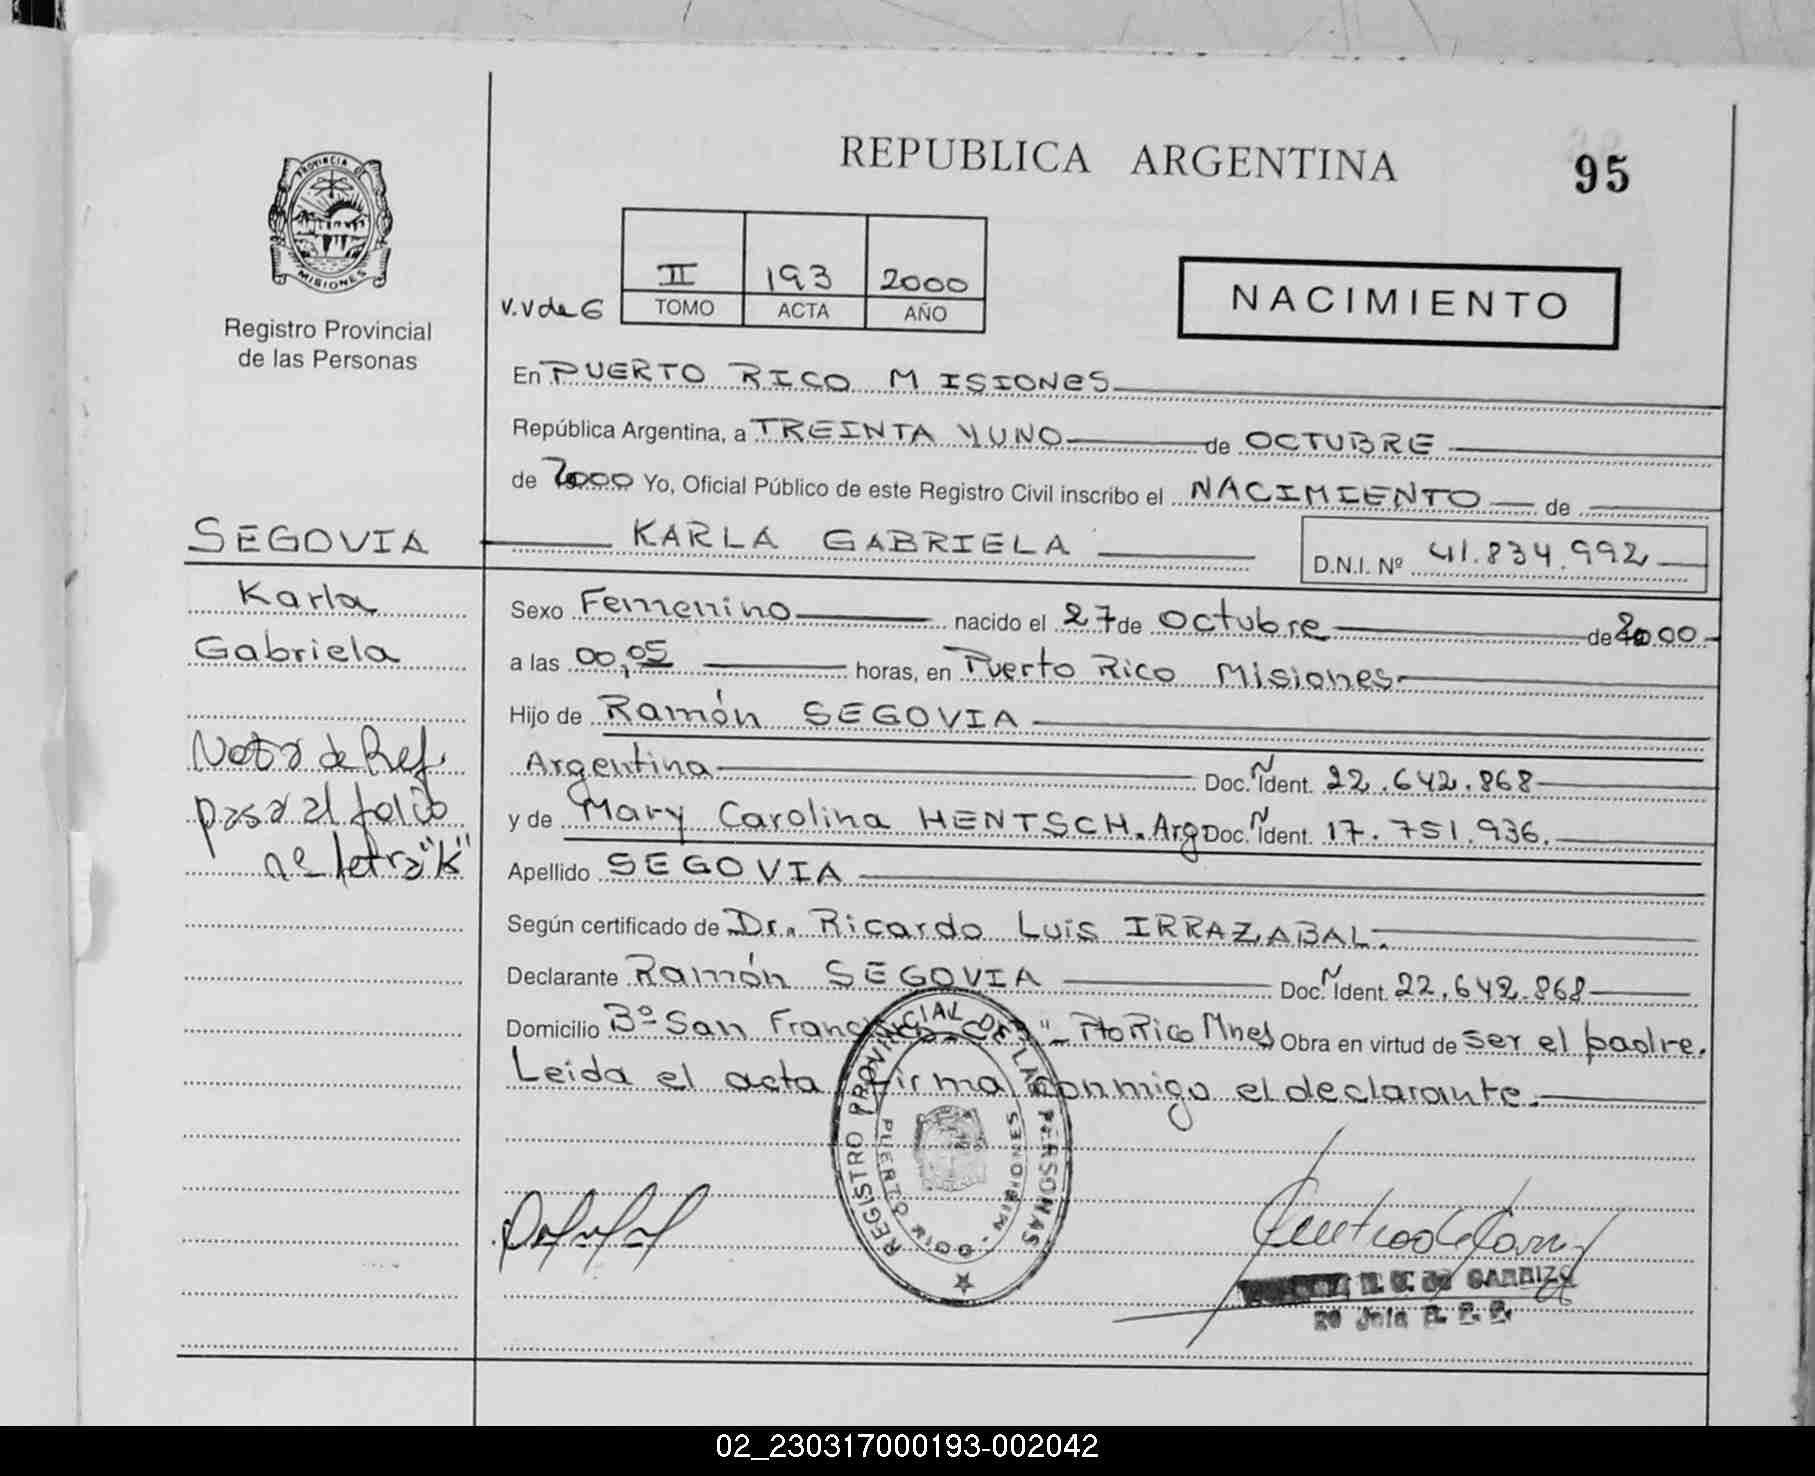 REPUBLICA ARGENTINA
95
PROVINCIA DE
MISIONES
Registro Provincial
de las Personas
II 193 2000
V.V de 6
TOMO ACTA AÑO
NACIMIENTO
En PUERTO RICO MISIONES
República Argentina, a TREINTA Y UNO de OCTUBRE
de 2000 Yo, Oficial Público de este Registro Civil inscribo el NACIMIENTO de
SEGOVIA
KARLA GABRIELA
D.N.I. Nº 41.834.992
Karla
Gabriela
Nota de Ref.
pasa al folio
nº letra "K"
Sexo Femenino nacido el 27 de Octubre de 2000
a las 00,05 horas, en Puerto Rico Misiones
Hijo de Ramón SEGOVIA
Argentina Doc. Ident. 22.642.868
y de Mary Carolina HENTSCH. Arg Doc. Ident. 17.751.936.
Apellido SEGOVIA
Según certificado de Dr. Ricardo Luis IRRAZABAL.
Declarante Ramón SEGOVIA Doc. Ident. 22.642.868
Domicilio Bº San Pto Rico Mnes Obra en virtud de ser el padre.
Leida el acta firma conmigo el declarante.
REGISTRO PROVINCIAL DE LAS PERSONAS
PUERTO RICO - MISIONES
02_230317000193-002042